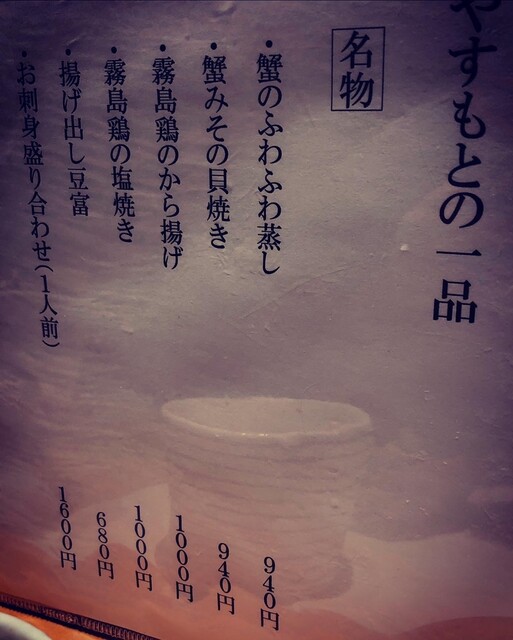 やすもとの一品
名物
・蟹のふわふわ蒸し 940円
・蟹みその貝焼き 940円
・霧島鶏のから揚げ 1000円
・霧島鶏の塩焼き 1000円
・揚げ出し豆富 680円
・お刺身盛り合わせ（1人前） 1600円